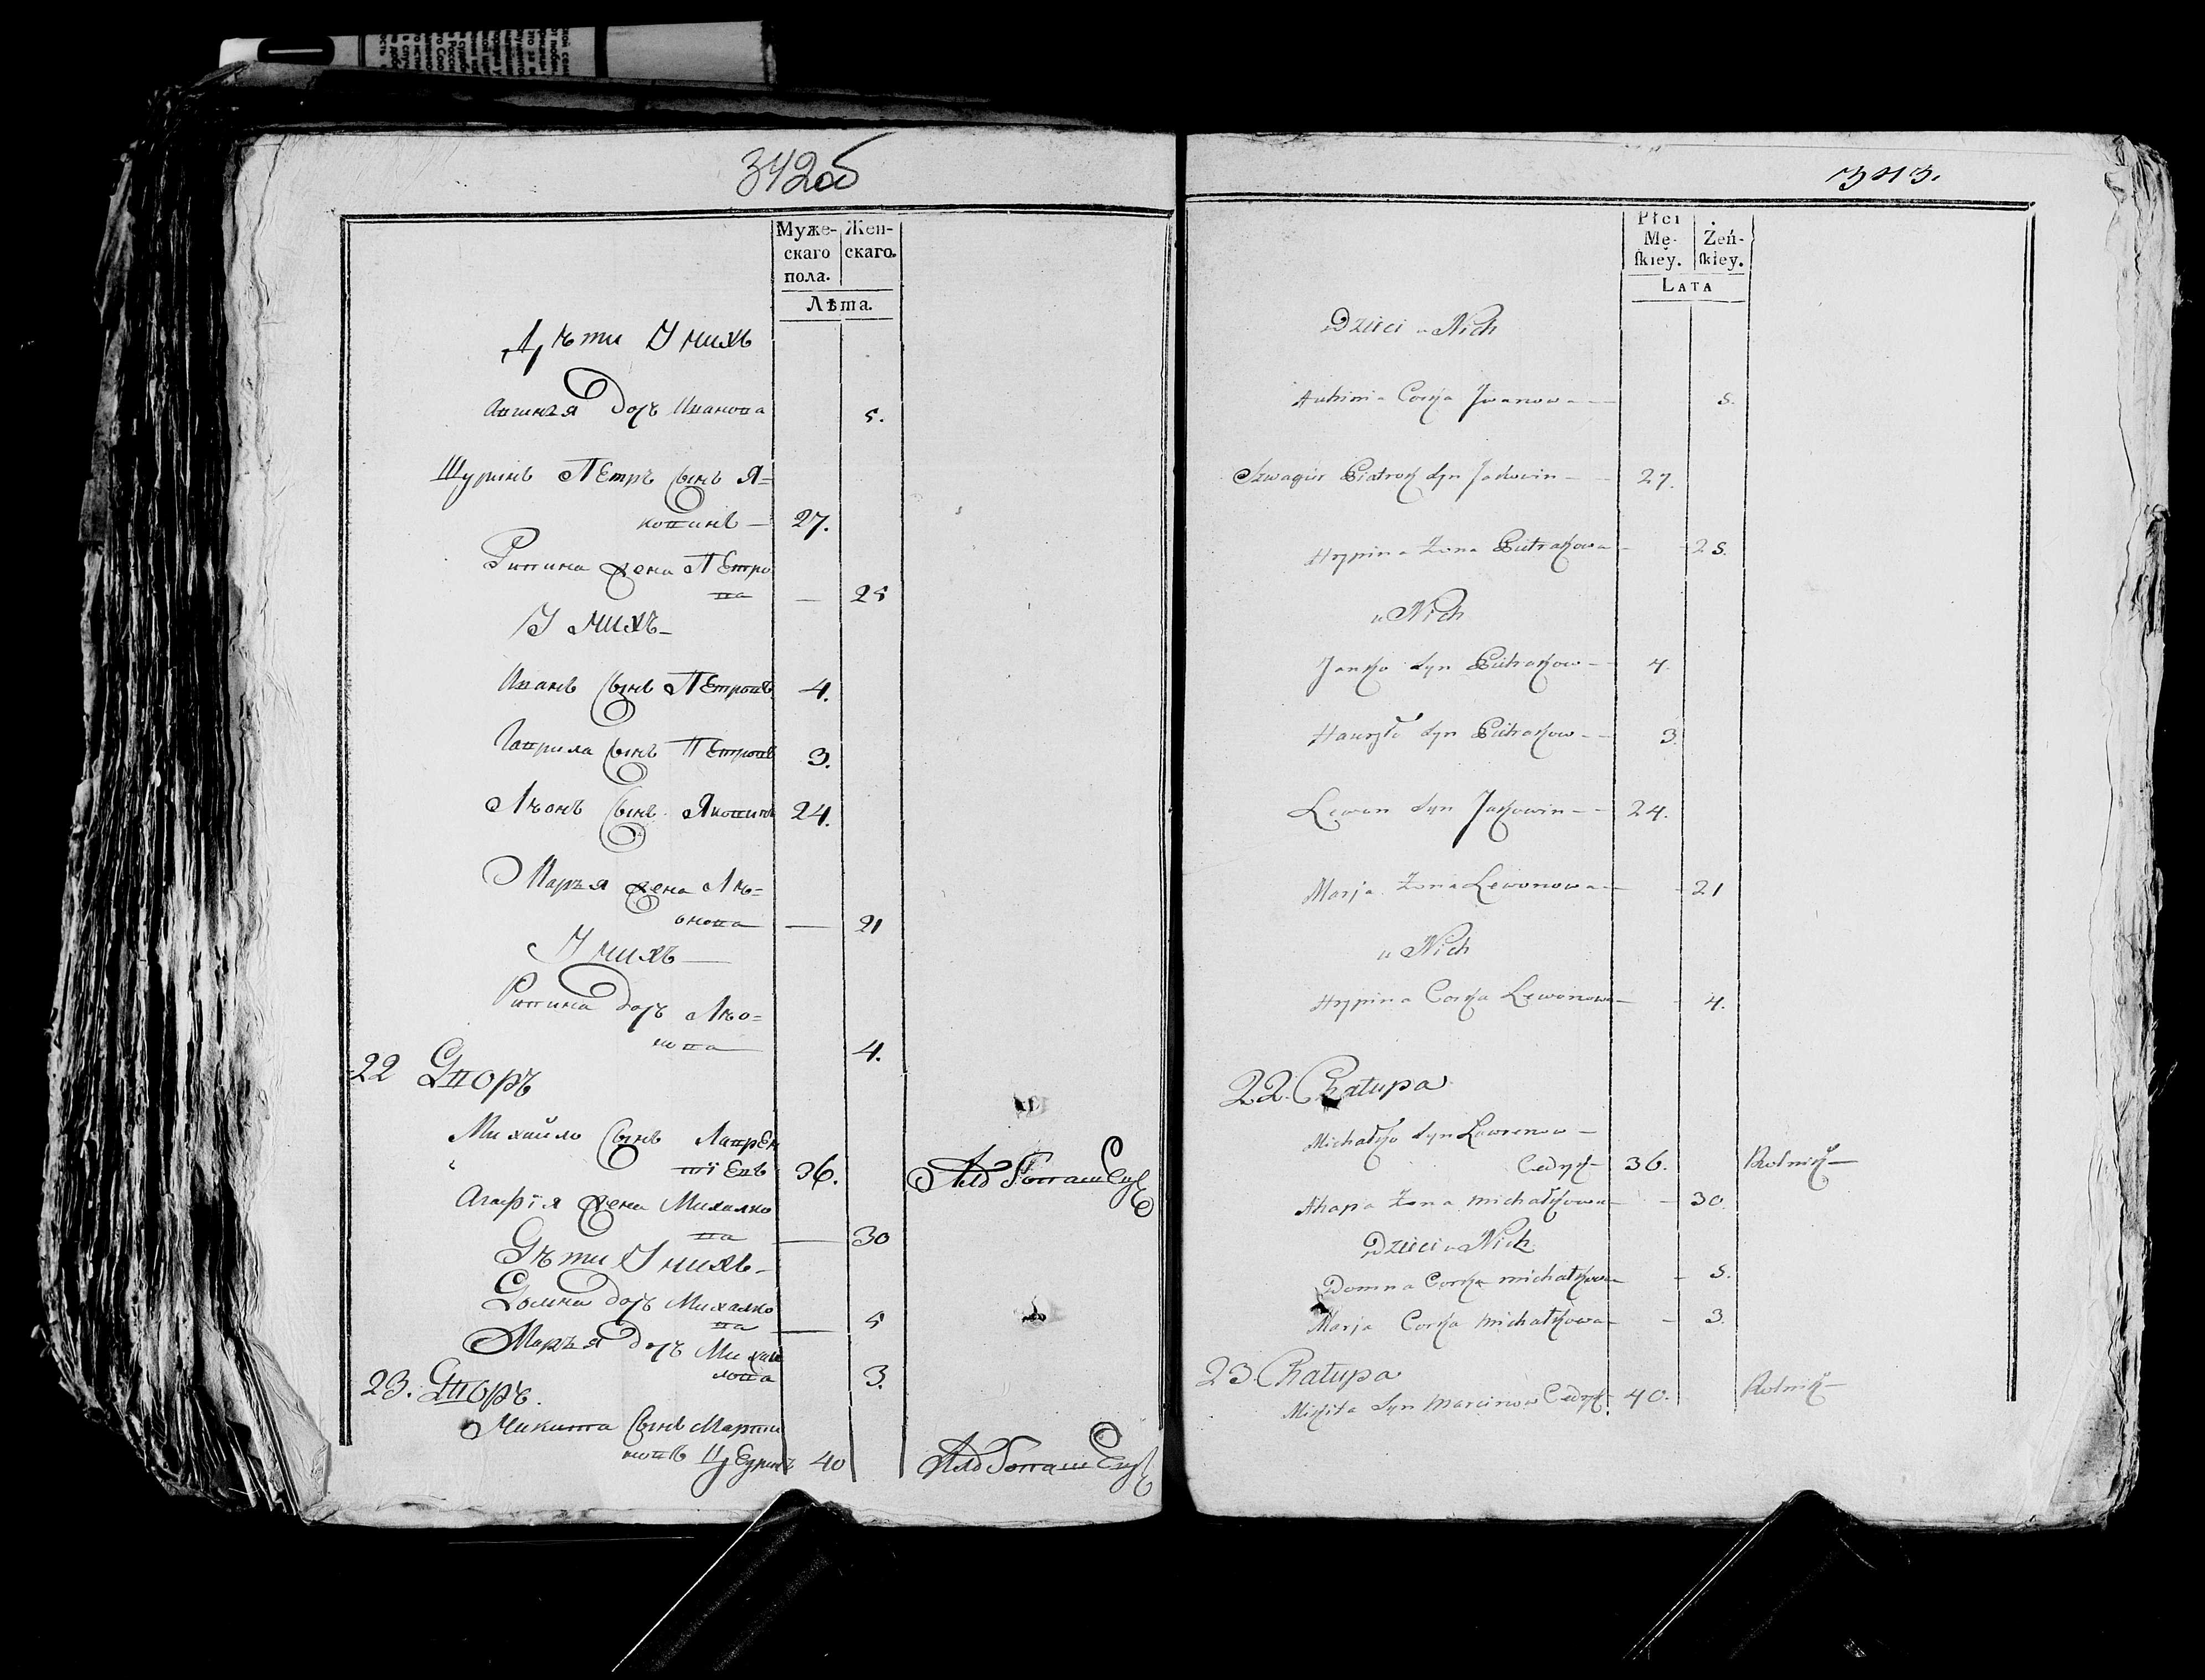 342об
Муже-
скаго
пола.
Жен-
скаго.
Лѣта.
Дѣти У нихъ
дочь Иванова 5.
Шуринъ Петръ сынъ Я=
ковинъ — 27.
Рипина жена Петро
ва — 25
У нихъ —
Иванъ сынъ Петровъ 4.
Гаврила сынъ Петровъ 3.
Лѣонъ сынъ Яковинъ 24.
Марья жена Лѣ=
онова — 21
У нихъ —
Рипина дочь Лѣо=
нова 4.
22 Дворъ
Михайло сынъ Лаврен
тіевъ 36.
Агафія жена Михалко
ва — 30
Дѣти У нихъ —
Домна дочь Михалко
ва — 5
Марья дочь Михай
лова 3.
23. Дворъ.
Микита сынъ Марти
новъ 40
343.
Płci
Mę-
ſkiey.
Żeń-
ſkiey.
LATA
Dzieci u Nich
Auhinia Corka Jwanowa — 5.
Szwagier Piatrok Syn Jakowin — 27.
Hrypina Zona Pietrakowa — 25.
u Nich
Janko Syn Pietrakow — 4.
Hauryło Syn Pietrakow — 3.
Lewon Syn Jakowin — 24.
Marja Zona Lewonowa — 21
u Nich
Hrypina Corka Lewonowa — 4.
22. Chałupa
Michałko Syn Lawrenow —
Cedryk — 36. Rolnik —
Ahapa Zona michałkowa — 30.
Dzieci u Nich
Domna Corka michałkowa — 5.
Marja Corka michałkowa — 3.
23. Chałupa
Mikita Syn marcinow Cedryk. 40. Rolnik —